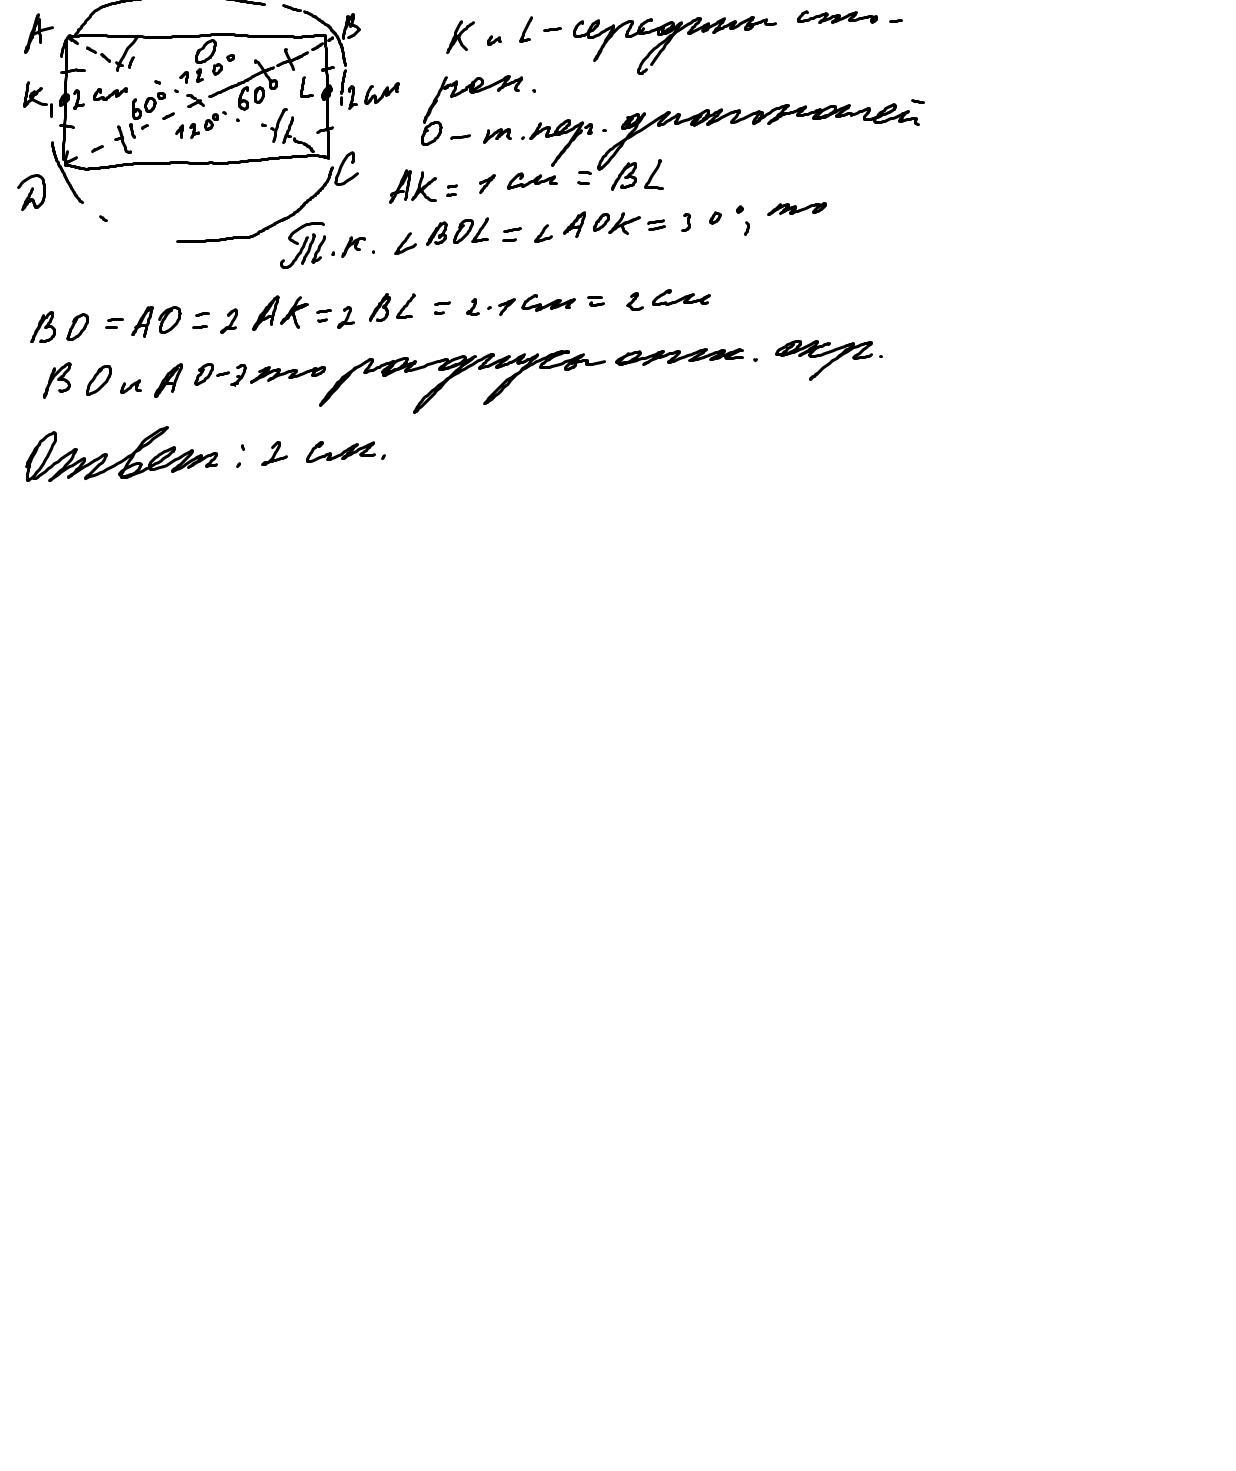 A B
O
120°
K 2 см 60° 60° L 2 см
120°
D C
K и L - середины сто-
рон.
O - т. пер. диагоналей
AK = 1 см = BL
Т.к. ∠BOL = ∠AOK = 30°, то
BO = AO = 2 AK = 2 BL = 2·1 см = 2 см
BO и AO - это радиусы опис. окр.
Ответ: 2 см.